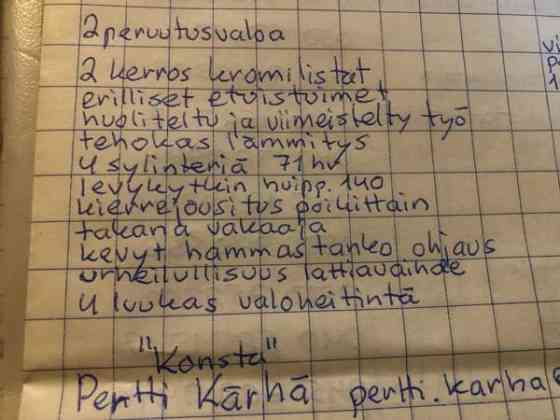 2 peruutusvaloa
2 kerros kromilistat
erilliset etuistuimet
huoliteltu ja viimeistelty työ
tehokas lämmitys
4 sylinteriä 71 hv
levykytkin huipp. 140
kierrejousitus poikittain
takana vakaaja
kevyt hammastanko ohjaus
urheilullisuus lattiavaihde
4 luukas valoheitintä
"Konsta"
Pertti Kärhä pertti.karha@